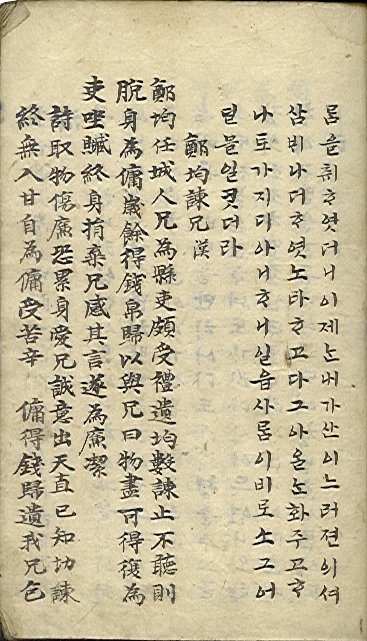 롬을취ᄒᆞ엿더니이제ᄂᆞᆫ내가산이느러젼의셔
삼ᄇᆡ나더ᄒᆞ엿노라ᄒᆞ고다그아올ᄂᆞᆫ화주고ᄒᆞ
나토가지디아니ᄒᆞ니실읍사ᄅᆞᆷ이비로소그어
딜믈일ᄏᆞᆺ더라
鄭均諫兄 漢
鄭均任城人兄為縣吏頗受禮遺均數諫止不聽則
脫身為傭歲餘得錢帛歸以與兄曰物盡可得復為
吏坐贓終身捐棄兄感其言遂為廉潔
詩取物傷廉恐累身愛兄誠意出天真已知切諫
終無入甘自為傭受苦辛 傭得錢歸遺我兄色